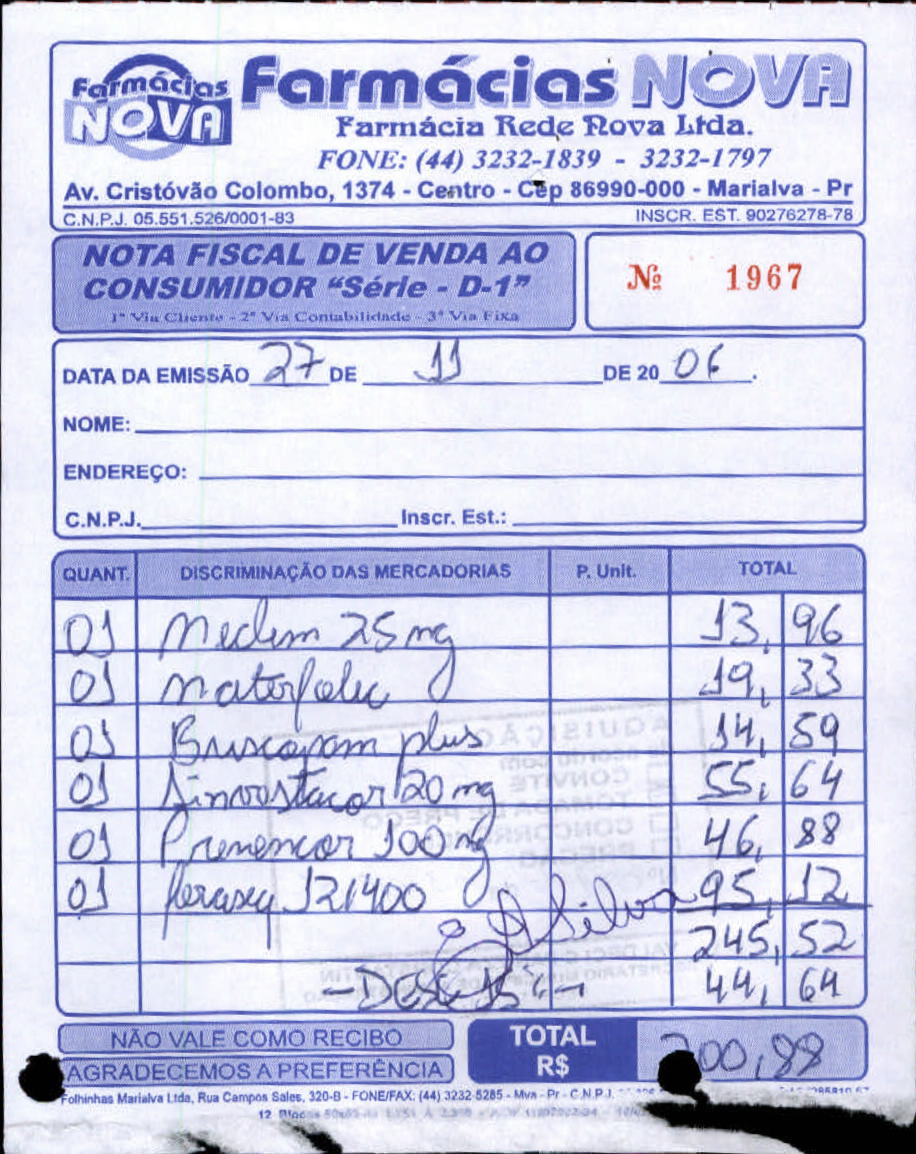 Farmácias NOVA
Farmácias NOVA
Farmácia Rede Nova Ltda.
FONE: (44) 3232-1839 - 3232-1797
Av. Cristóvão Colombo, 1374 - Centro - Cep 86990-000 - Marialva - Pr
C.N.P.J. 05.551.526/0001-83 INSCR. EST. 90276278-78
NOTA FISCAL DE VENDA AO
CONSUMIDOR "Série - D-1"
1ª Via Cliente - 2ª Via Contabilidade - 3ª Via Fixa
Nº 1967
DATA DA EMISSÃO 27 DE 11 DE 20 06.
NOME:
ENDEREÇO:
C.N.P.J. Inscr. Est.:
QUANT. DISCRIMINAÇÃO DAS MERCADORIAS P. Unit. TOTAL
01 Meclim 25 mg 13,96
01 Materfolic 19,33
01 Buscopam plus 14,59
01 Sinvastacor 20 mg 55,64
01 100 mg 46,88
01 121400 95,12
Silva
245,52
44,64
AQUISIÇÃO
de acordo com
CONVITE
TOMADA DE PREÇO
CONCORRÊNCIA
PREGÃO
NÃO VALE COMO RECIBO
AGRADECEMOS A PREFERÊNCIA
TOTAL
R$ 200,88
Folhinhas Marialva Ltda, Rua Campos Sales, 320-B - FONE/FAX: (44) 3232-5285 - Mva - Pr - C.N.P.J.